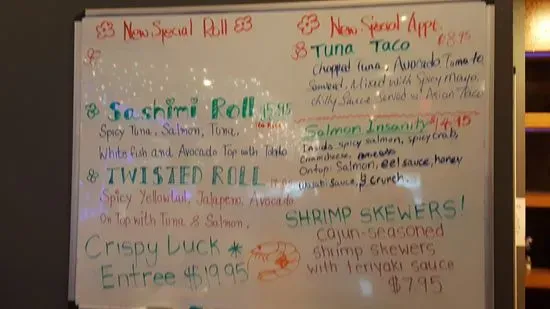 New Special Roll
Sashimi Roll 15.95
no Rice
Spicy Tuna, Salmon, Tuna,
White fish and Avocado Top with Tobiko
TWISTED ROLL
Spicy Yellowtail, Jalapeno, Avocado
On Top with Tuna & Salmon.
Crispy Duck
Entree $19.95
New Special Appt.
Tuna Taco $8.95
Chopped Tuna, Avocado Tomato
Seaweed, Mixed with Spicy Mayo
chilly Sauce Served w/ Asian Taco
Salmon Insanity $14.95
Inside spicy salmon, spicy crab,
creamcheese,
Ontop: Salmon, eel sauce, honey
wasabi sauce, & crunch.
SHRIMP SKEWERS!
cajun-seasoned
shrimp skewers
with teriyaki sauce
$7.95